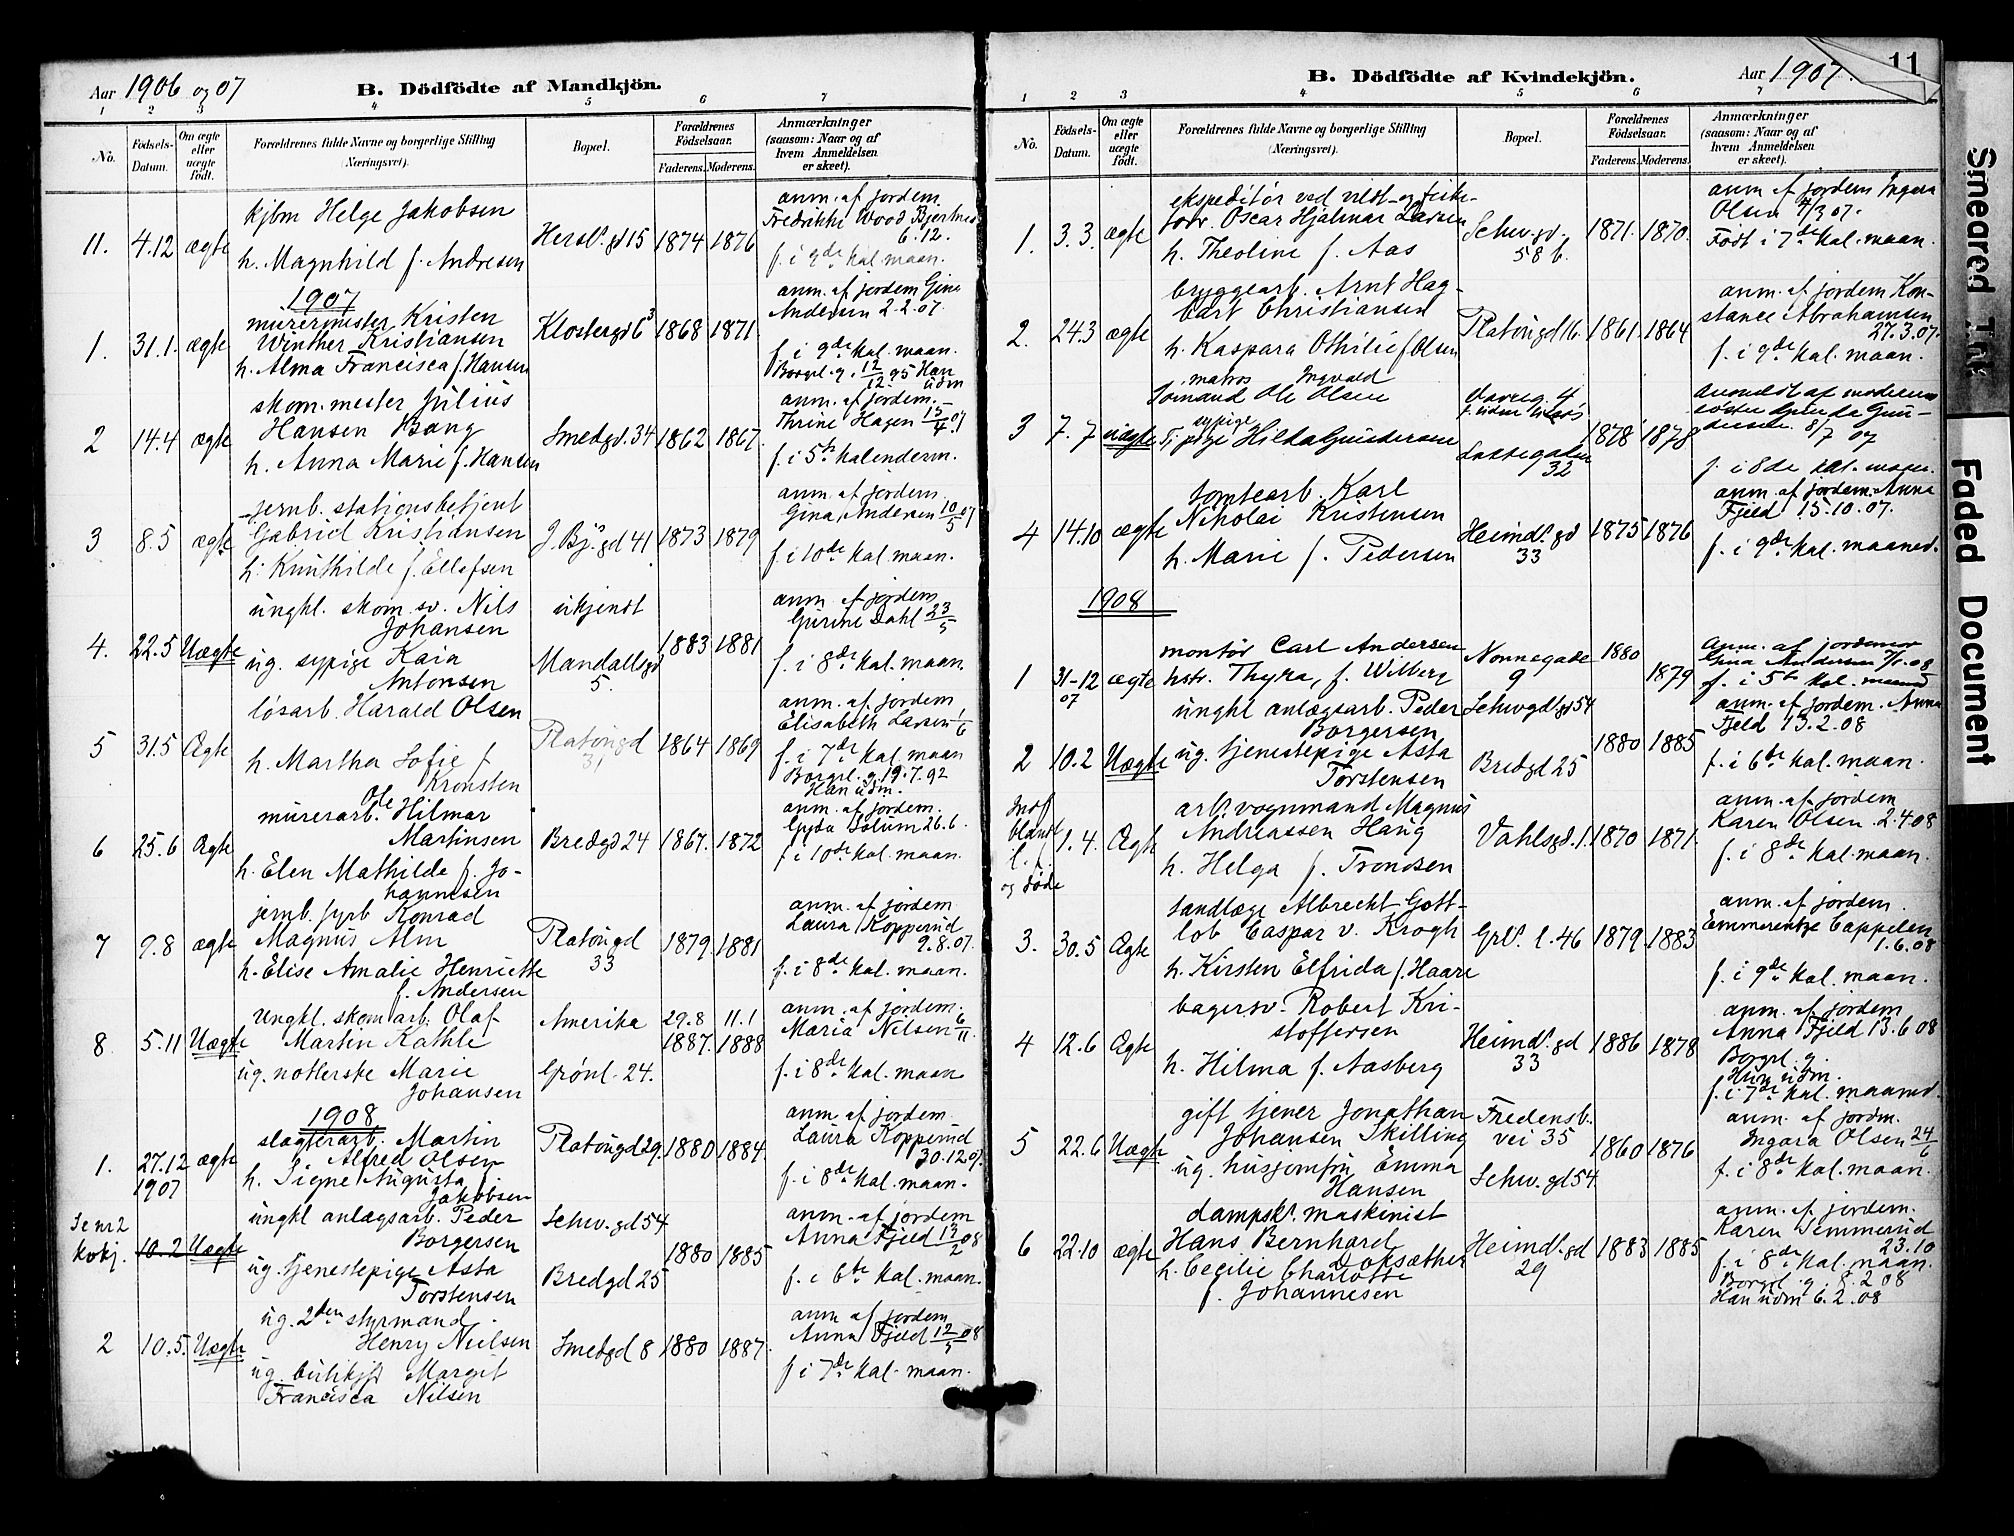 Aar 1906 og 07
B. Dödfödte af Mandkjön.
1 2 3 4 5 6 7
No.
Födsels-Datum.
Om ægte eller uægte födt.
Forældrenes fulde Navne og borgerlige Stilling
(Næringsvei).
Bopæl.
Forældrenes Födselsaar.
Faderens. Moderens.
Anmærkninger
(saasom: Naar og af
hvem Anmeldelsen
er skeet).
11. 4.12 ægte
kjbm Helge Jakobsen
h. Magnhild f. Andresen
Hersl. gd 15 1874 1876
anm. af jordem.
Fredrikke Wood
6.12.
f. i 9de kal. maan.
1907
1. 31.1. ægte
murermester Kristen
Winther Kristiansen
h. Alma Francisca f. Hansen
Klostergd 63 1868 1871
anm. af jordem Gina
Andersen 2.2.07.
f. i 9de kal. maan.
Borgrl. g. 12/12 95 Han
udm
2 14.4 ægte
skom. mester Julius
Hansen Bang
h. Anna Marie f. Hansen
Smedgd. 34 1862 1867.
anm. af jordem.
Thrine Hagen 15/4 07
f. i 5te kalenderm.
3 8.5 ægte
jernb. stationsbetjent
Gabriel Kristiansen
h. Kunthilde f. Ellefsen
J. Bj. gd 41 1873 1879
anm. af jordem.
Gina Andersen 10/5 07
f. i 10de kal. maan.
4. 22.5 Uægte
ungkl. skom. sv. Nils
Johansen
ug. sypige Kaia
Antonsen
ukjendt
Mandallsgd
5.
1883 1881
anm. af jordem
Gurine Dahl 23/5
f. i 8de kal. maan.
5 31.5 Ægte
løsarb. Harald Olsen
h. Martha Sofie f.
Kronsten
Platougd
31
1864 1869
anm. af jordem.
Elisabeth Larsen 1/6
f. i 7de kal. maan
Borgrl. g. 19.7.92
Han udm.
6 25.6 Ægte
murerarb. Ole Hilmar
Martinsen
h. Elen Mathilde f. Jo-
hannesen
Bredgd 24 1867. 1872
anm. af jordem.
Gyda Solum 26.6.
f. i 10de kal. maan.
7 9.8 ægte
jernb. fyrb Konrad
Magnus Alm
h. Elise Amalie Henriette
f. Andersen
Platougd
33
1879. 1881
anm. af jordem
Laura Kopperud
9.8.07.
f. i 8de kal. maan.
8 5.11 Uægte
Ungkl. skom arb. Olaf
Martin Kathle
ug. notlerske Marie
Johansen
Amerika
Grönl. 24.
29.8 11.1
1887. 1888
anm. af jordem.
Maria Nilsen 6/11.
f. i 8de kal. maan
1908
1. 27.12 1907 ægte
slagterarb. Martin
Alfred Olsen
h. Signe Augusta f.
Jakobsen
Platougd 29. 1880 1884.
anm. af jordem.
Laura Kopperud
30.12.07.
f. i 8de kal. maan.
Se nr 2
kvkj. 10.2 Uægte
ungkl anlægsarb. Peder
Borgersen
ug. tjenestepige Asta
Torstensen
Schw. gd 54
Bredgd 25
1880 1885
anm. af jordem
Anna Fjeld 13/2 08
f. i 6te kal. maan.
2 10.5. Uægte
ug. 2den styrmand
Henry Nielsen
ug. butikjf Margit
Francisca Nilsen
Smedgd 8 1880 1887.
anm af jordem
Anna Fjeld 12/5 08
f. i 7de kal. maan.
B. Dödfödte af Kvindekjön.
Aar 1907.
11
1 2 3 4 5 6 7
No.
Födsels-Datum.
Om ægte eller uægte födt.
Forældrenes fulde Navne og borgerlige Stilling
(Næringsvei).
Bopæl.
Forældrenes Födselsaar.
Faderens. Moderens.
Anmærkninger
(saasom: Naar og af
hvem Anmeldelsen
er skeet).
1. 3.3. ægte
ekspeditør ved vildt- og fiske-
forr. Oscar Hjalmar Larsen
h. Theoline f. Aas
Schw. gd.
58 b.
1871. 1870.
anm. af jordem Ingara
Olsen 4/3 07.
Født i 7de kal. maan.
2. 24.3 ægte
bryggearb. Arnt Hag-
bart Christiansen
h. Kaspara Othilie f. Olsen
Platougd 16. 1861. 1864
anm. af jordem Kon-
stance Abrahamsen
27.3.07.
f. i 9de kal. maan.
3 7.7 uægte
matros Ingvald
Sømand Ole Olsen
sypige
Tj. pige Hilda Gundersen
32
1878 1878
anmeldt af moderens
søster
8/7 07
f. i 8de kal. maan.
4 14.10 ægte
tomtearb. Karl
Nikolai Kristensen
h. Marie f. Pedersen
Heimd. gd
33
1875 1876
anm. af jordem. Anna
Fjeld 15.10.07.
f. i 9de kal. maaned.
1908
1 31-12 07 ægte
montør Carl Andersen
hstr. Thyra, f. Wilberg
Nonnegade
9
1880 1879
anm. af jordemor
Gina Andersen 7/1.08
f. i 5te kal. maaned
2 10.2 Uægte
ungkl anlægsarb. Peder
Borgersen
ug. tjenestepige Asta
Torstensen
Schwgdgd 54
Bredgd 25
1880 1885
anm. af jordem. Anna
Fjeld 13.2.08
f. i 6te kal. maan.
Indf
blandt
l. f.
og døde
1.4. Ægte
arb. vognmand Magnus
Andreassen Haug
h. Helga f. Trondsen
Vahlsgd. 1. 1870 1871.
anm. af jordem
Karen Olsen. 2.4 08
f. i 8de kal. maan.
3. 30.5 Ægte
tandlæge Albrecht Gott-
lob Caspar v. Krogh
h. Kirsten Elfrida f. Haare
Grl. l. 46 1879 1883
anm. af jordem.
Emmerentze Cappelen
1.6.08
f. i 9de kal. maan.
4 12.6 Ægte
bagersv. Robert Kri-
stoffersen
h. Hilma f. Aasberg
Heimd. gd
33
1886 1878
anm. af jordem
Anna Fjeld 13.6 08
Borgrl. g.
Hun udm.
f. i 7de kal. maaned.
5 22.6 Uægte
gift tjener Jonathan
Johansen Skilling
ug. husjomfru Emma
Hansen
Fredensb.
vei 35
Schw. gd 54.
1860 1876
anm. af jordm.
Ingara Olsen 24/6
f. i 8de kal. maan.
6 22.10 ægte
dampsk. maskinist
Hans Bernhard
Dopsæther
h. Cecilie Charlotte
f. Johannesen
Heimd. gd
29
1883 1885
anm. af jordem.
Karen Semmerud
23.10
f. i 8de kal. maan.
Borgrl. g. 8.2 08
Han udm 6.2.08
Smeared Ink
Faded Document